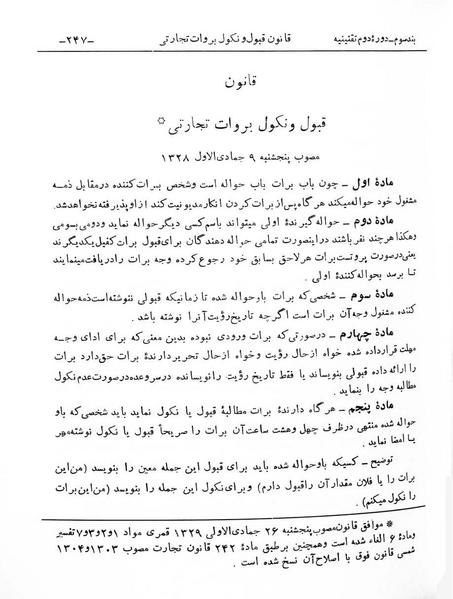 بند سوم – دورهٔ دوم تقنینیه
قانون قبول و نکول بروات تجارتی
–۲۴۷–
قانون
قبول و نکول بروات تجارتی *
مصوب پنجشنبه ۹ جمادی‌الاول ۱۳۲۸
مادهٔ اول – چون باب برات باب حواله است و شخص برات کننده در مقابل ذمه
مشغول خود حواله میکند هر گاه پس از برات کردن انکار مدیونیت کند از او پذیرفته نخواهد شد.
مادهٔ دوم – حواله گیرندهٔ اولی میتواند باسم کسی دیگر حواله نماید و دومی بسومی
وهکذا هر چند نفر باشند در اینصورت تمامی حواله دهندگان برای قبول برات کفیل یکدیگرند
یعنی در صورت پروتست برات هر لاحق بسابق خود رجوع کرده وجه برات را دریافت مینمایند
تا برسد بحواله کنندهٔ اولی .
مادهٔ سوم – شخصی که برات باو حواله شده تا زمانیکه قبولی ننوشته است ذمه حواله
کننده مشغول وجه آن برات است اگرچه تاریخ رؤیت آنرا نوشته باشد .
مادهٔ چهارم – در صورتی که برات ورودی نبوده بدین معنی که برای ادای وجه
مهلت قرار داده شده خواه از حال رؤیت و خواه از حال تحریر دارندهٔ برات حق دارد برات
را ارائه داده قبولی بنویساند یا فقط تاریخ رؤیت را نویسانده در سر وعده در صورت عدم نکول
مطالبه وجه را بنماید .
مادهٔ پنجم – هر گاه دارندهٔ برات مطالبهٔ قبول یا نکول نماید باید شخصی که باو
حواله شده منتهی در ظرف چهل و هشت ساعت آن برات را صریحاً قبول یا نکول نوشته مهر
یا امضا نماید .
توضیح – کسیکه باو حواله شده باید برای قبول این جمله معین را بنویسد (من این
برات را یا فلان مقدار آن را قبول دارم) و برای نکول این جمله را بنویسد (من این برات
را نکول میکنم).
* موافق قانون مصوب پنجشنبه ۲۶ جمادی‌الاولی ۱۳۲۹ قمری مواد ۱ و ۲ و ۳ و ۷ تفسیر
و مادهٔ ۶ الغاء شده است و همچنین بر طبق مادهٔ ۲۴۲ قانون تجارت مصوب ۱۳۰۳ و ۱۳۰۴
شمسی قانون فوق با اصلاح آن نسخ شده است .